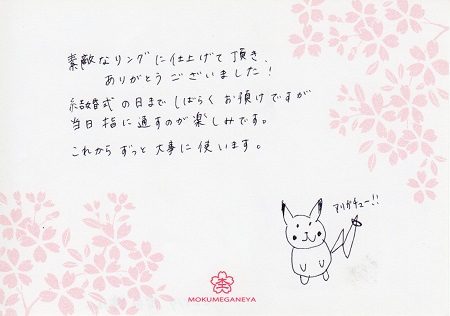 素敵なリングに仕上げて頂き、
ありがとうございました！
結婚式の日まで しばらく お預けですが
当日 指に通すのが楽しみです。
これから ずっと 大事に 使います。
アリガチュー!!
MOKUMEGANEYA